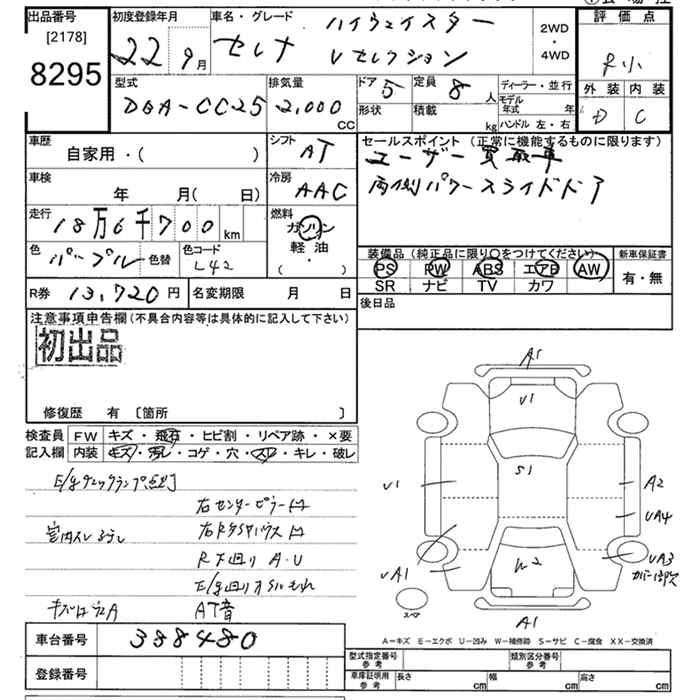 出品番号
[2178]
8295
初度登録年月
22 9月
車名・グレード
セレナ
ハイウェイスター
Vセレクション
2WD
・
4WD
評価点
R小
外装 内装
D C
型式
DBA-CC25
排気量
2,000 CC
ドア 5
形状
定員 8 人
積載 kg
ディーラー・並行
モデル年式 年
ハンドル 左・右
車歴
自家用・( )
シフト
AT
車検
年 月( 日)
冷房
AAC
走行
18万6千700km
燃料
ガソリン
軽油
・
( )
色 パープル 色替
色コード
L42
R券 13,720円
名変期限 月 日
セールスポイント (正常に機能するものに限ります)
ユーザー買取車
両側パワースライドドア
装備品(純正品に限り〇をつけてください)
新車保証書
PS PW ABS エアB AW
SR ナビ TV カワ
有・無
後日品
注意事項申告欄(不具合内容等は具体的に記入して下さい)
初出品
修復歴 有 〔箇所 〕
検査員
記入欄
FW キズ・飛石・ヒビ割・リペア跡・×要
内装 キズ・汚レ・コゲ・穴・スレ・キレ・破レ
E/gチェックランプ点灯
右センターピラー凹
右リアタイヤハウス凹
R下廻り A・U
E/g廻りオイルもれ
AT音
A1
U1
S1
U1
A2
UA4
UA1
W2
UA3
スペア
A1
A-キズ E-エクボ U-凹み W-補修跡 S-サビ C-腐食 XX-交換済
車台番号 388480
登録番号
型式指定番号
参考
類別区分番号
参考
車庫証明用
参考
長さ cm 幅 cm 高さ cm